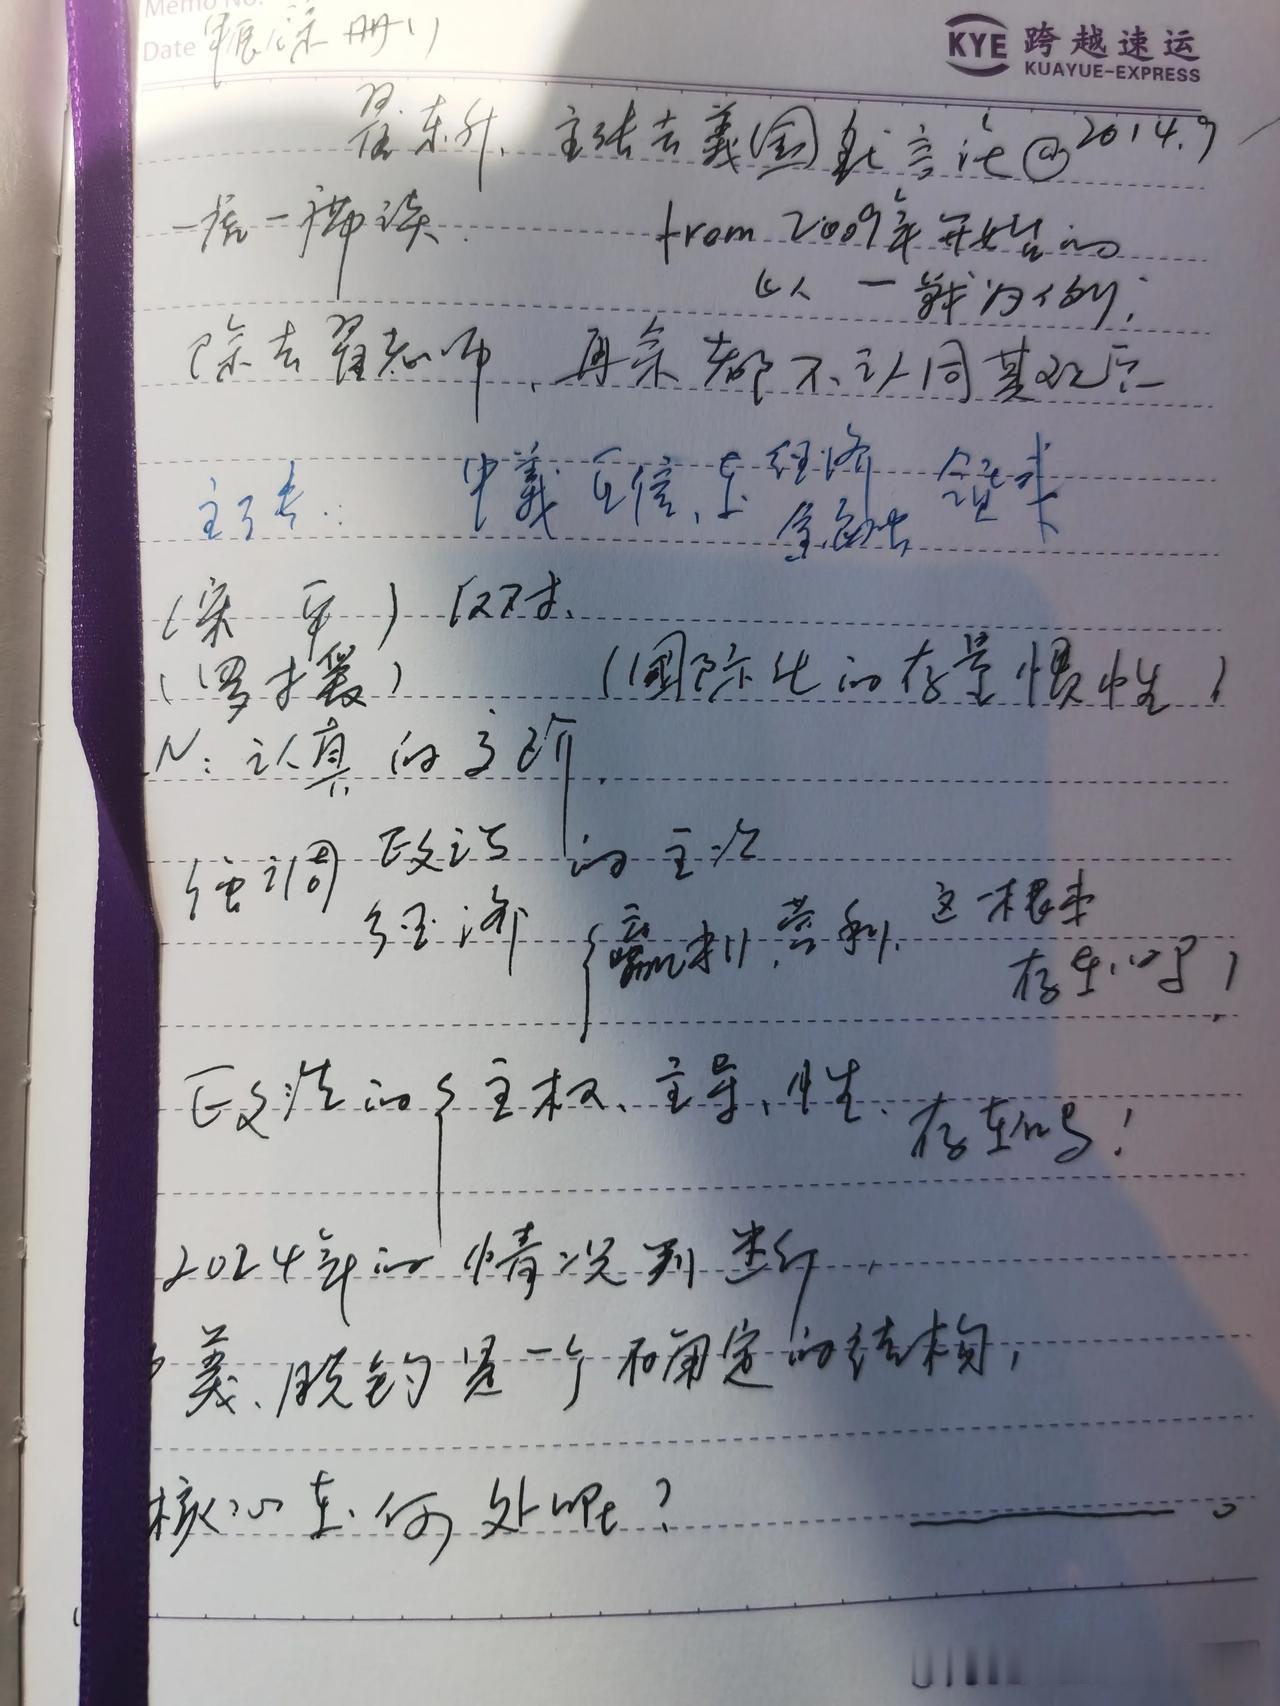 Memo No.
Date
KYE 跨越速运
KUAYUE-EXPRESS
翟东升、主张去義(国) @ 2014.9
一带谈
from 2009年开始的
以一 为例;
除去翟老师、再余者都不认同其观点
主张: 中義互信、在经济 金融 追求
(宋 军) 反对、
(罗 援) (國际化的存量惯性)
N: 认真的
强调 政治 经济 的主次
{赢利、营利、这一根本
存在吗)
政治的{主权、主导、性、存在吗!
2024年的情况判断,
義、脱钩是一个不确定的结构,
核心在何处呢? 。